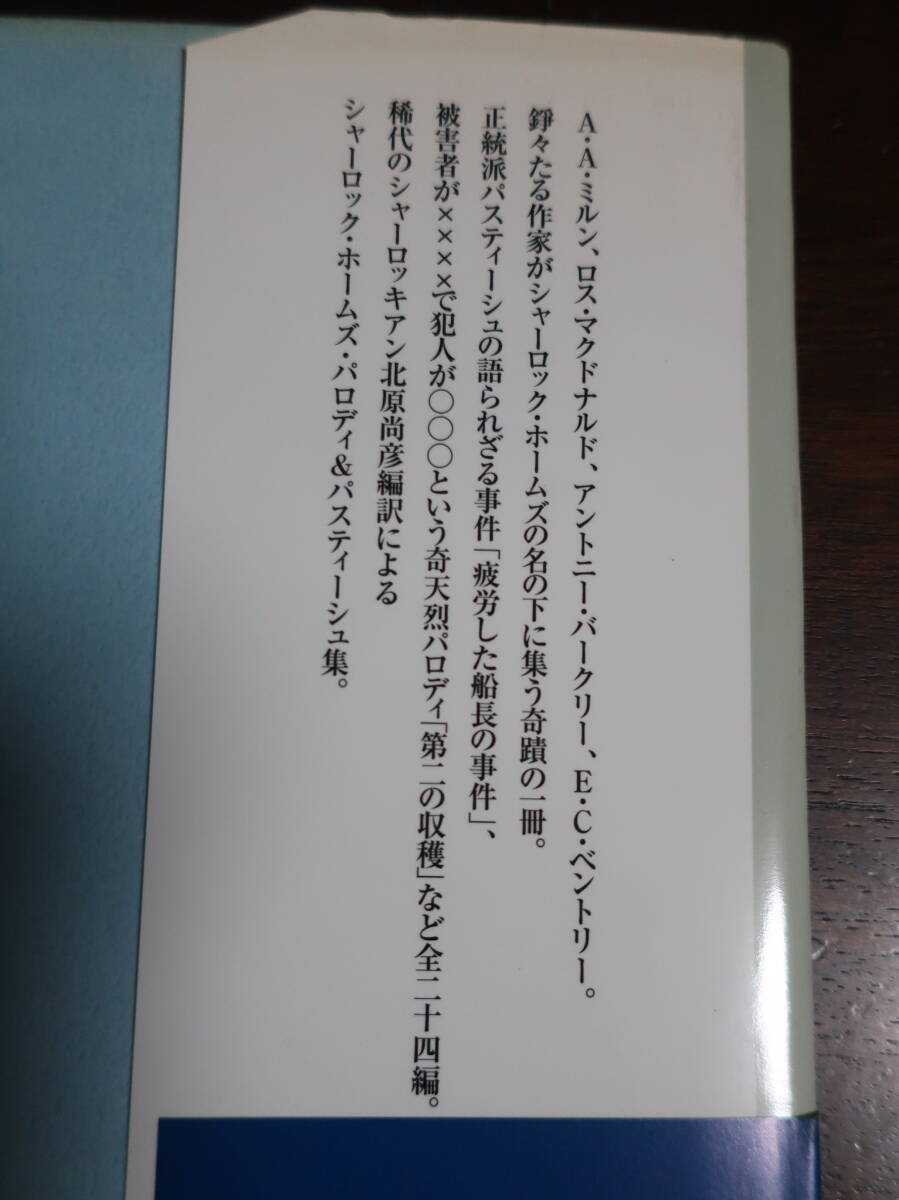 A・A・ミルン、ロス・マクドナルド、アントニー・バークリー、E・C・ベントリー。
錚々たる作家がシャーロック・ホームズの名の下に集う奇蹟の一冊。
正統派パスティーシュの語られざる事件「疲労した船長の事件」、
被害者が×××で犯人が○○○という奇天烈パロディ「第二の収穫」など全二十四編。
稀代のシャーロッキアン北原尚彦編訳による
シャーロック・ホームズ・パロディ&パスティーシュ集。